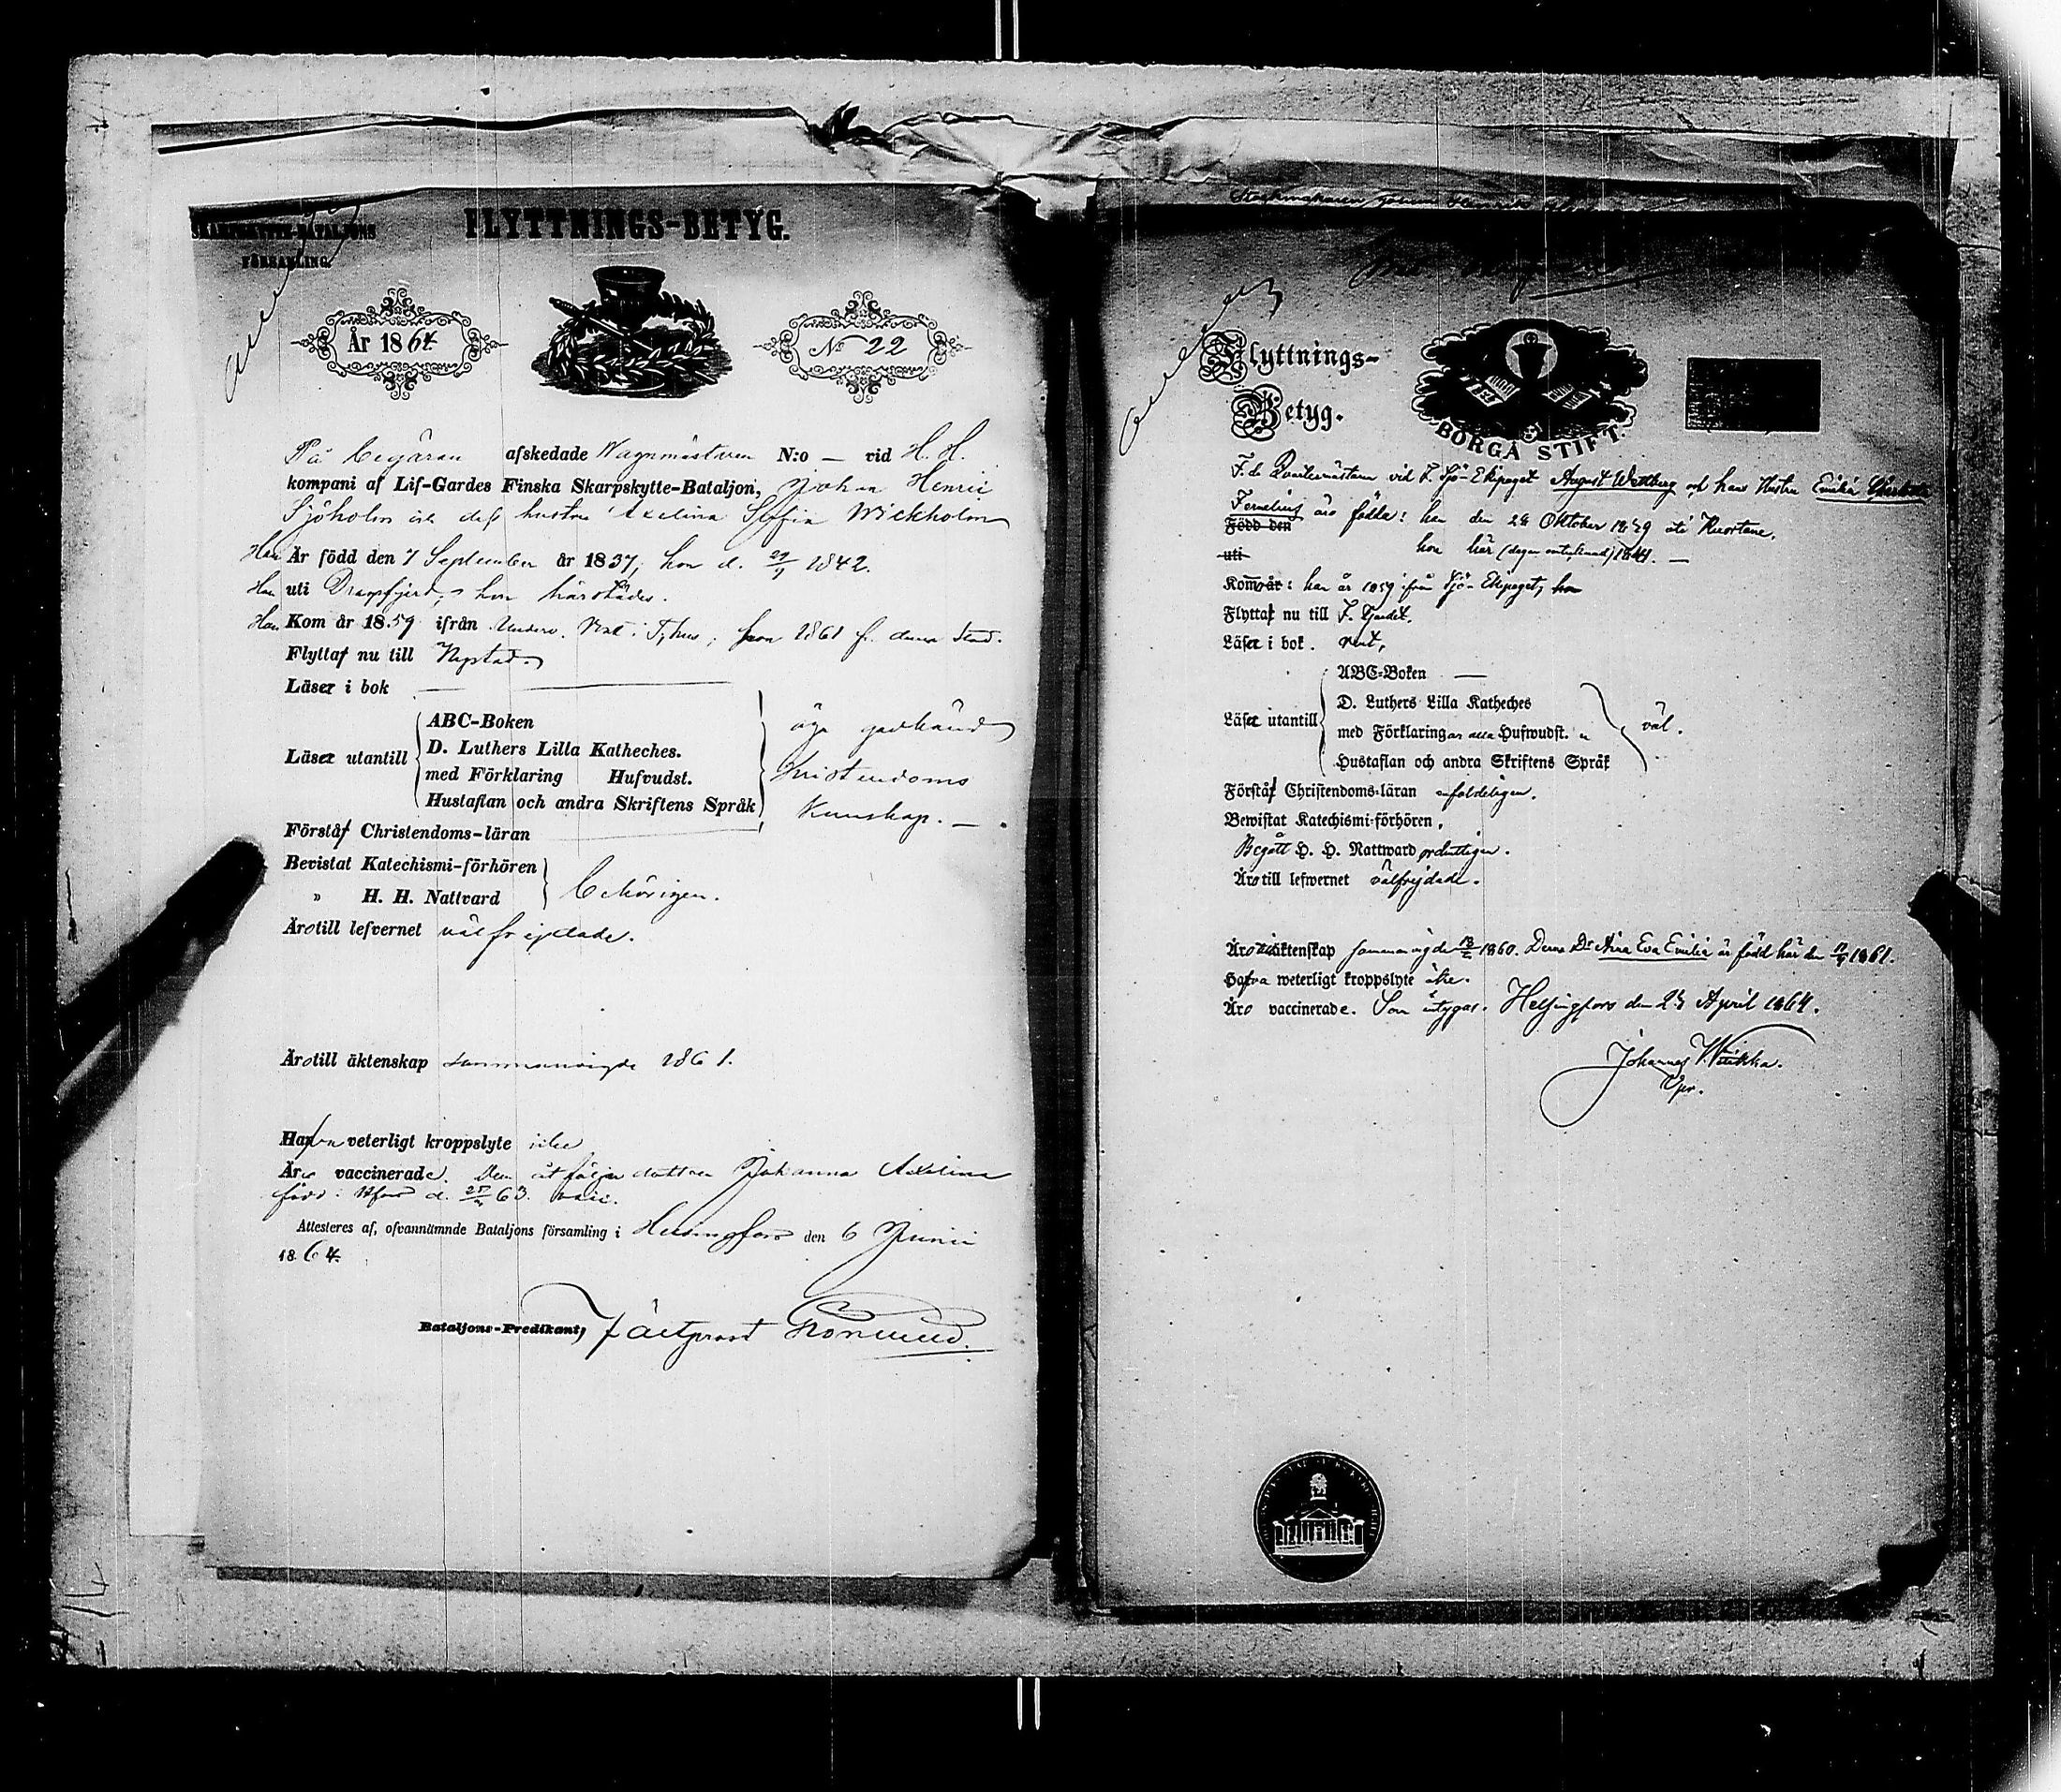 SKARPSKYTTE-BATALJONS
FÖRSAMLING.
FLYTTNINGS-BETYG.
År 1864
No 22
På begäran afskedade Wagnmästaren N:o — vid H. H.
kompani af Lif-Gardes Finska Skarpskytte-Bataljon, Johan Henric
Sjöholm och dess hustru Axelina Sofia Wickholm
Han Är född den 7 September år 1837, hon d. 1842.
Han uti Dragsfjerd; hon härstädes.
Han Kom år 1859 ifrån hon 1861 fr. denna Stad.
Flyttaf nu till Nystad.
Läser i bok —
Läser utantill
ABC-Boken
D. Luthers Lilla Katheches.
med Förklaring Hufvudst.
Hustaflan och andra Skriftens Språk
äga godkänd
Kristendoms
Kunskap. —
Förstå Christendoms-läran
Bevistat Katechismi-förhören
„ H. H. Nattvard
behörigen.
Äro till lefvernet välfrejdade.
Äro till äktenskap sammanvigde 1861.
Hafva veterligt kroppslyte icke
Äro vaccinerade. Dem åtföljer dottren Johanna Axelina
född i Hfors d. 63. vacc.
Attesteres af, ofvannämnde Bataljons församling i Helsingfors den 6 Junii
1864.
Bataljons-Predikant,
Flyttnings-
Betyg.
BORGÅ STIFT.
F. d. Qvartermästaren vid F. Sjö-Ekipaget August Westberg och hans Hustru Emilia
Fornelius äro födda: han den Oktober uti Kuortane,
Född den
uti hon här 1841. —
Kom år: han år 1859 från Sjö-Ekipaget, hon
Flytta nu till
Läser i bok. rent,
Läser utantill
ABC-Boken —
D. Luthers Lilla Katheches
med Förklaringar alla Hufwudst.
Hustaflan och andra Skriftens Språk
väl.
Förstå Christendoms-läran enfaldeligen.
Bewistat Katechismi-förhören,
Begått H. H. Nattward ordentligen.
Äro till lefwernet välfrejdade.
Äro äktenskap sammanvigde 1860. Deras Dr Eva Emilia är född här den 1861.
Hafva weterligt kroppslyte icke.
Äro vaccinerade. Som intygas. Helsingfors den April 1864.
Johannes